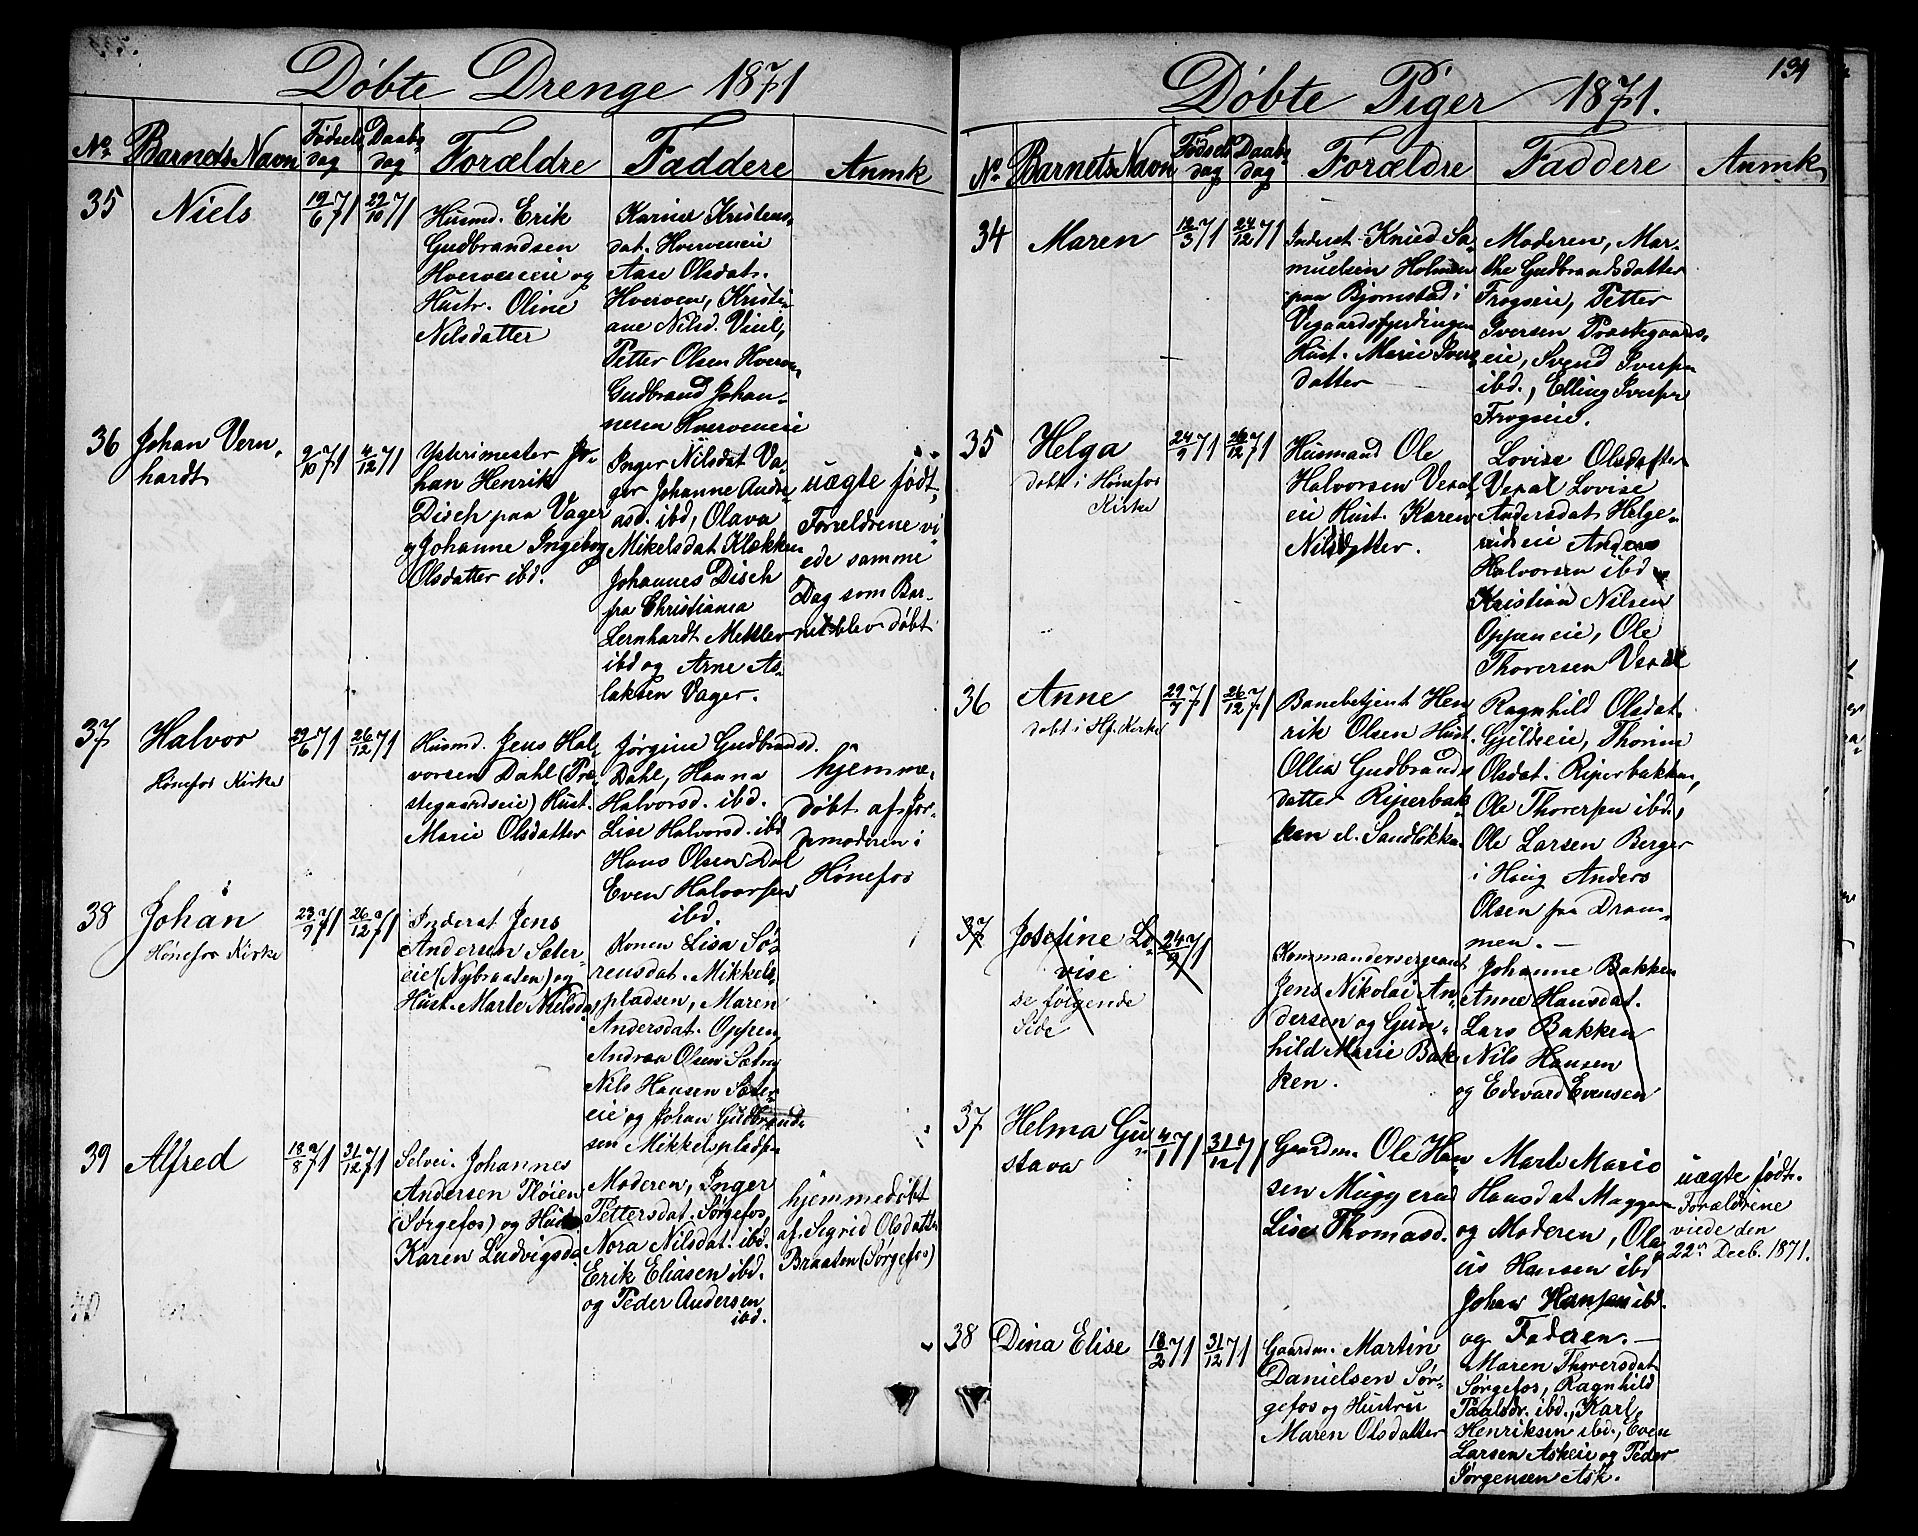 Døbte Drenge 1871
No Barnets Navn Fødsels dag Daabs dag Forældre Faddere Anmk
35 Niels 19/6 71 29/10 71
Husmd. Erik
Gudbrandsen
Hverveneie og
Hustr. Oline
Nilsdatter
Karine Kristens-
dat. Hverveneie
Aase Olsdat.
Hverven, Kristi-
ane Nilsd. Viul,
Petter Olsen Hverv-
Gudbrand Johan-
nesen Hverveneie
36 Johan Vern-
hardt
9/10 71 4/12 71
Ysterimester Jo-
han Henrik
Disch paa Vager
og Johanne Ingeborg
Olsdatter ibd.
Inger Nilsdat Va-
ger Johanne Andre-
asd. ibd, Olava
Mikelsdat Klækken
Johannes Disch
fra Christiania
Lernhardt Mettler
ibd og Arne As-
laksen Vager.
uægte født,
Forældrene vi-
ede samme
Dag som Bar-
net blev døbt
37 Halvor
Hønefos Kirke
29/6 71 26/12 71
Husmd. Jens Hal-
vorsen Dahl (Præ-
stegaardseie) Hust.
Marie Olsdatter
Jørgine Gudbransd.
Dahl, Hanna
Halvorsd. ibd.
Lise Halvorsd. ibd
Hans Olsen Dal
Even Halvorsen
ibd.
hjemme-
døbt af Jor-
demoderen i
Hønefos
38 Johan
Hønefos Kirke
23/9 71 26/12 71
Inderst Jens
Andersen Sæter-
eie (Nybraaten) og
Hust. Marte Nielsda.
Konen Lisa Sø-
rensdat. Mikkels-
pladsen, Maren
Andersdat. Oppen
Andrea Olsen Sætray
Nils Hansen Sæter-
eie og Johan Gudbrand-
sen Mikkelspladsen
39 Alfred
18/8 71 31/12 71
Selvei. Johannes
Andersen Fløien
(Sørgefos) og Hust
Karen Ludvigsda.
Moderen, Inger
Pettersdat. Sørgefos
Nora Nilsdat. ibd.
Erik Eliasen ibd.
og Peder Andersen
ibd.
hjemmedøbt
af Sigrid Olsdatter
Braaten (Sørgefos)
40
Døbte Piger 1871.
131
No Barnets Navn Fødsels dag Daabs dag Forældre Faddere Anmk
34 Maren 12/3 71 24/12 71
Inderst Knud Sa-
muelsen Holmen
paa Bjørnstad i
Vegaardsfjerdingen
Hust. Marie Ivers-
datter
Moderen, Mar-
the Gudbrandsdatter
Frogseie, Petter
Iversen Præstegaards-
eie, Svend Iversen
ibd., Elling Iversen
Frogseie.
35 Helga
døbt i Hønefos
Kirke
24/9 71 26/12 71
Husmand Ole
Halvorsen Veral-
eie Hust. Karen
Nilsdatter.
Lovise Olsdatter
Veral Lovise
Andersdat. Helge-
rudeie Anders
Halvorsen ibd
Kristian Nilsen
Oppeneie, Ole
Thoversen Veral
36 Anne
døbt i Hf. Kirke
29/7 71 26/12 71
Banebetjent Hen-
rik Olsen Hust.
Ollia Gudbrands
datter Riperbak-
ken el. Sandløkka.
Ragnhild Olsdat.
Gjildseie, Thorine
Olsdat. Riperbakken,
Ole Thoversen ibd.,
Ole Larsen Berger
i Houg Anders
Olsen fra Dram-
men. —
37 Josefine Lo-
vise
se følgende
Side
24/9 71
Kommandersergeant
Jens Nikolai An-
dersen og Gun-
hild Marie Bak-
ken.
Johanne Bakken
Anne Hansdat.
Lars Bakken
Nils Hansen
og Edevard Evensen
37 Helma Gu-
stava
4/1 71 31/12 71
Gaardm. Ole Han-
sen Muggerud
Lise Thomasd.
Marte Marie
Hansdat Mugger-
og Moderen, Ola-
us Hansen ibd
Johan Hansen ibd.
og Faderen. —
uægte født.
Forældrene
viede den
22n Decb. 1871.
38 Dina Elise 18/2 71 31/12 71
Gaardm. Martin
Danielsen Sør-
gefos og Hustru
Maren Olsdatter
Maren Thoversdat
Sørgefos, Ragnhild
Paalsdr. ibd., Karl
Henriksen ibd., Even
Larsen Askeie og Peder
Jørgensen Ask.